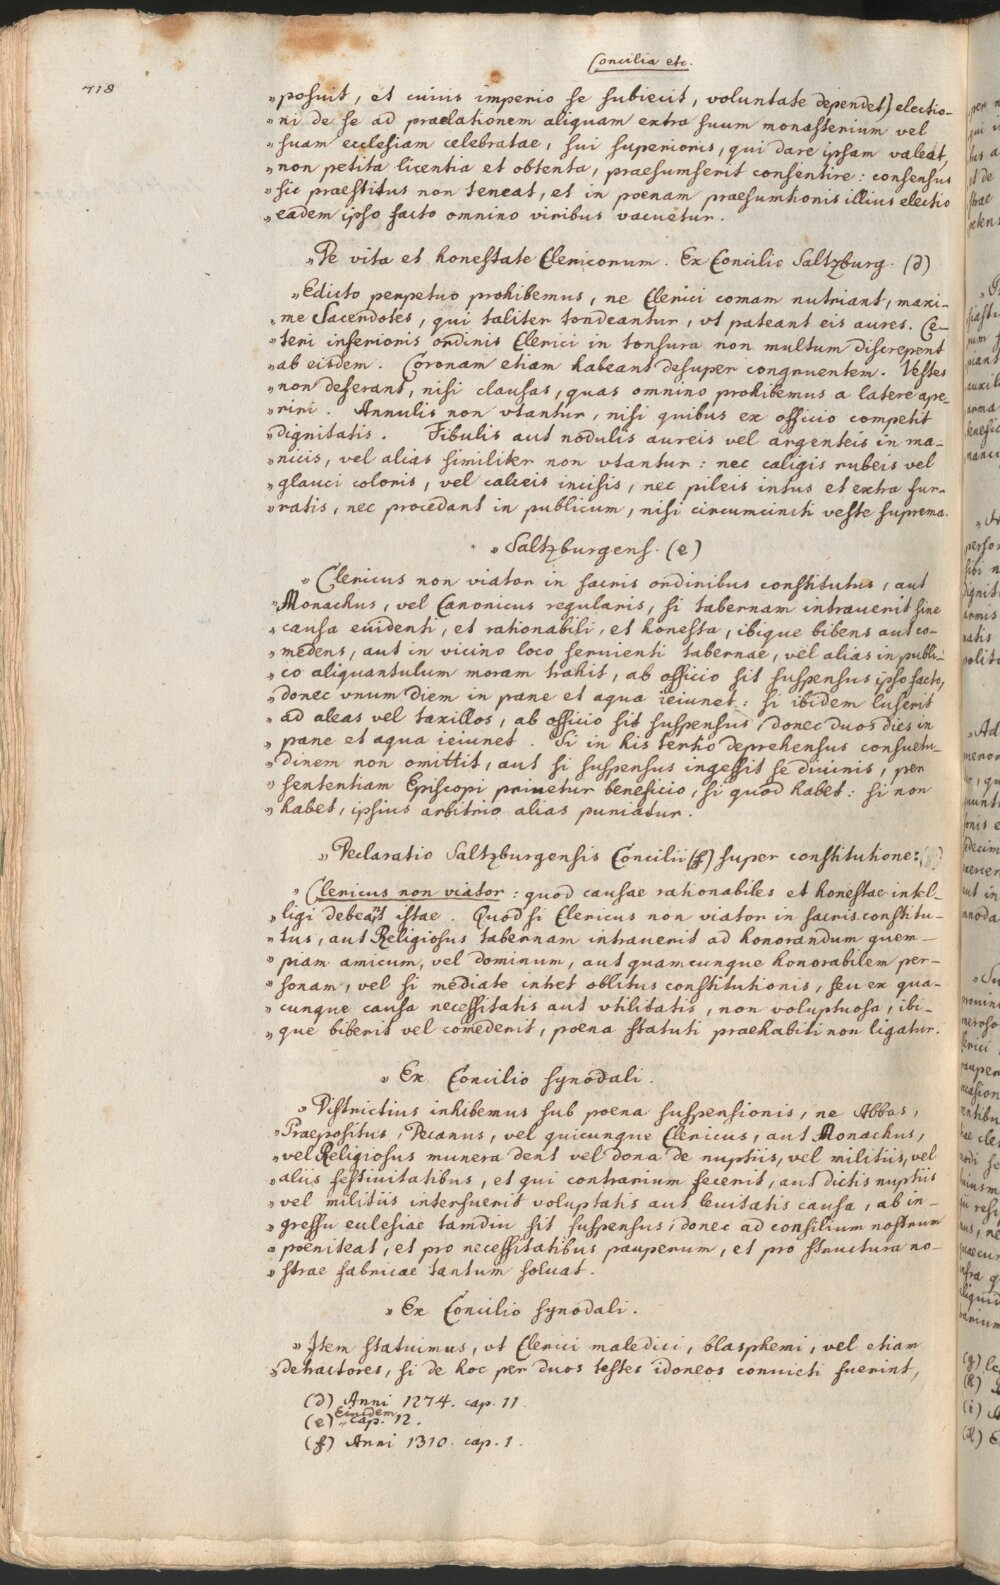 Concilia etc.
718
"posuit, et cuius imperio se subiecit, voluntate dependet) electio-
"ni de se ad praelationem aliquam extra suum monasterium vel
"suam ecclesiam celebratae, sui superioris, qui dare ipsam valeat,
"non petita licentia et obtenta, praesumserit consentire: consensus
"sic praestitus non teneat, et in poenam praesumtionis illius electio
"eadem ipso facto omnino viribus vacuetur.
"De vita et honestate Clericorum. Ex Concilio Saltzburg. (d)
"Edicto perpetuo prohibemus, ne Clerici comam nutriant, maxi-
"me Sacerdotes, qui taliter tondeantur, vt pateant eis aures. Ce-
"teri inferioris ordinis Clerici in tonsura non multum discrepent
"ab eisdem. Coronam etiam habeant desuper congruentem. Vestes
"non deferant, nisi clausas, quas omnino prohibemus a latere ape-
"riri. Annulis non vtantur, nisi quibus ex officio competit
"dignitatis. Fibulis aut nodulis aureis vel argenteis in ma-
"nicis, vel alias similiter non vtantur: nec caligis rubeis vel
"glauci coloris, vel calceis incisis, nec pileis intus et extra fur-
"ratis, nec procedant in publicum, nisi circumcincti veste suprema.
"Saltzburgens. (e)
"Clericus non viator in sacris ordinibus constitutus, aut
"Monachus, vel Canonicus regularis, si tabernam intrauerit sine
"causa euidenti, et rationabili, et honesta, ibique bibens aut co-
"medens, aut in vicino loco seruienti tabernae, vel alias in publi-
"co aliquantulum moram trahit, ab officio sit suspensus ipso facto,
"donec vnum diem in pane et aqua ieiunet: si ibidem luserit
"ad aleas vel taxillos, ab officio sit suspensus, donec duos dies in
"pane et aqua ieiunet. Si in his tertio deprehensus consuetu-
"dinem non omittit, aut si suspensus ingessit se diuinis, per
"sententiam Episcopi priuetur beneficio, si quod habet: si non
"habet, ipsius arbitrio alias puniatur.
"Declaratio Saltzburgensis Concilii (f) super constitutione:
"Clericus non viator: quod causae rationabiles et honestae intel-
"ligi debeant istae. Quod si Clericus non viator in sacris constitu-
"tus, aut Religiosus tabernam intrauerit ad honorandum quem-
"piam amicum, vel dominum, aut quamcunque honorabilem per-
"sonam, vel si mediate intret oblitus constitutionis, seu ex qua-
"cunque causa necessitatis aut vtilitatis, non voluptuosa, ibi-
"que biberit vel comederit, poena statuti praehabiti non ligatur.
"Ex Concilio synodali.
"Districtius inhibemus sub poena suspensionis, ne Abbas,
"Praepositus, Decanus, vel quicunque Clericus, aut Monachus,
"vel Religiosus munera dent vel dona de nuptiis, vel militiis, vel
"aliis festiuitatibus, et qui contrarium fecerit, aut dictis nuptiis
"vel militiis interfuerit voluptatis aut leuitatis causa, ab in-
"gressu eclesiae tamdiu sit suspensus, donec ad consilium nostrum
"poeniteat, et pro necessitatibus pauperum, et pro structura no-
"strae fabricae tantum soluat.
"Ex Concilio synodali.
"Item statuimus, vt Clerici maledici, blasphemi, vel etiam
"detractores, si de hoc per duos testes idoneos conuicti fuerint,
(d) Anni 1274. cap. 11.
(e) Eiusdem cap. 12.
(f) Anni 1310. cap. 1.